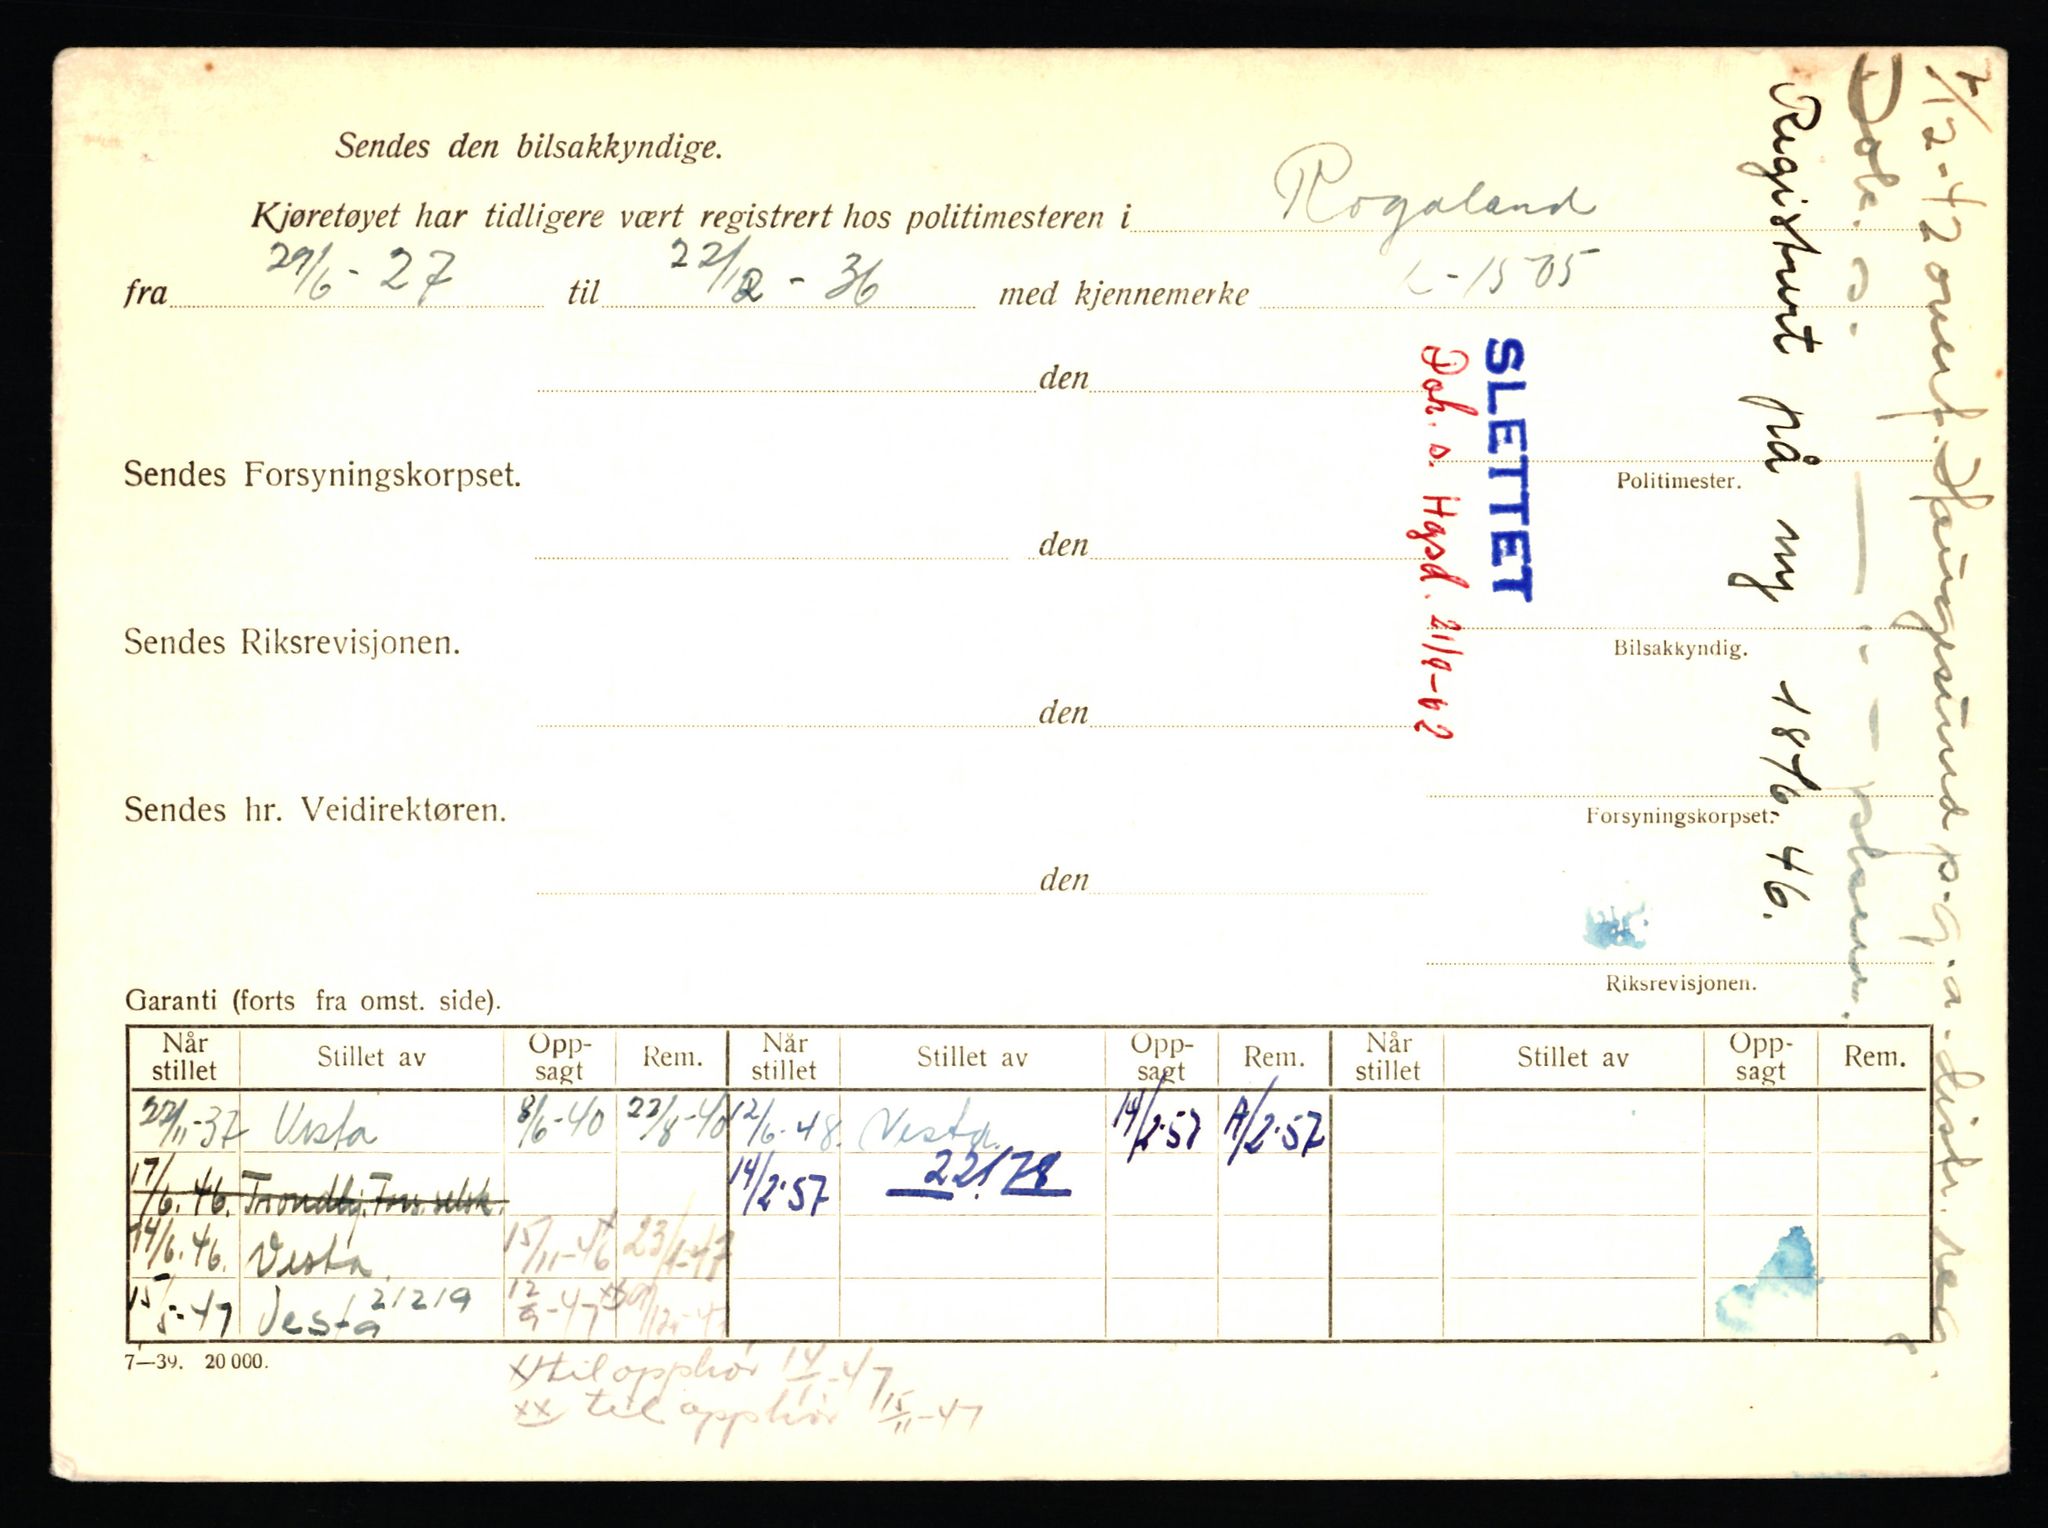 Sendes den bilsakkyndige.
Kjøretøyet har tidligere vært registrert hos politimesteren i Rogaland
fra 29/6-27 til 22/12-36 med kjennemerke L-1505
den
Sendes Forsyningskorpset. Politimester.
den
Sendes Riksrevisjonen. Bilsakkyndig.
den
Sendes hr. Veidirektøren. Forsyningskorpset.
den
Riksrevisjonen.
SLETTET
Dok. s. Hgsd. 21/9-62
Registrert på ny 18/6. 46.
Dok. s.
7/12-42 overf. Haugesund p.g.a. distr. reg.
Garanti (forts fra omst. side).
Når stillet Stillet av Opp-sagt Rem. Når stillet Stillet av Opp-sagt Rem. Når stillet Stillet av Opp-sagt Rem.
22/11-37 Vesta 8/6-40 22/8-40 12/6-48. Vesta. 14/2-57 A/2-57
17/6.46. Trondhj. Fors. selsk. 14/2-57 22178
14/6.46. Vesta. 15/11-46 x 23/1-47
15/5-47 Vesta 21219 12/9-47 xx
7—39. 20 000.
x til opphør 14/1-47
xx til opphør 15/11-47